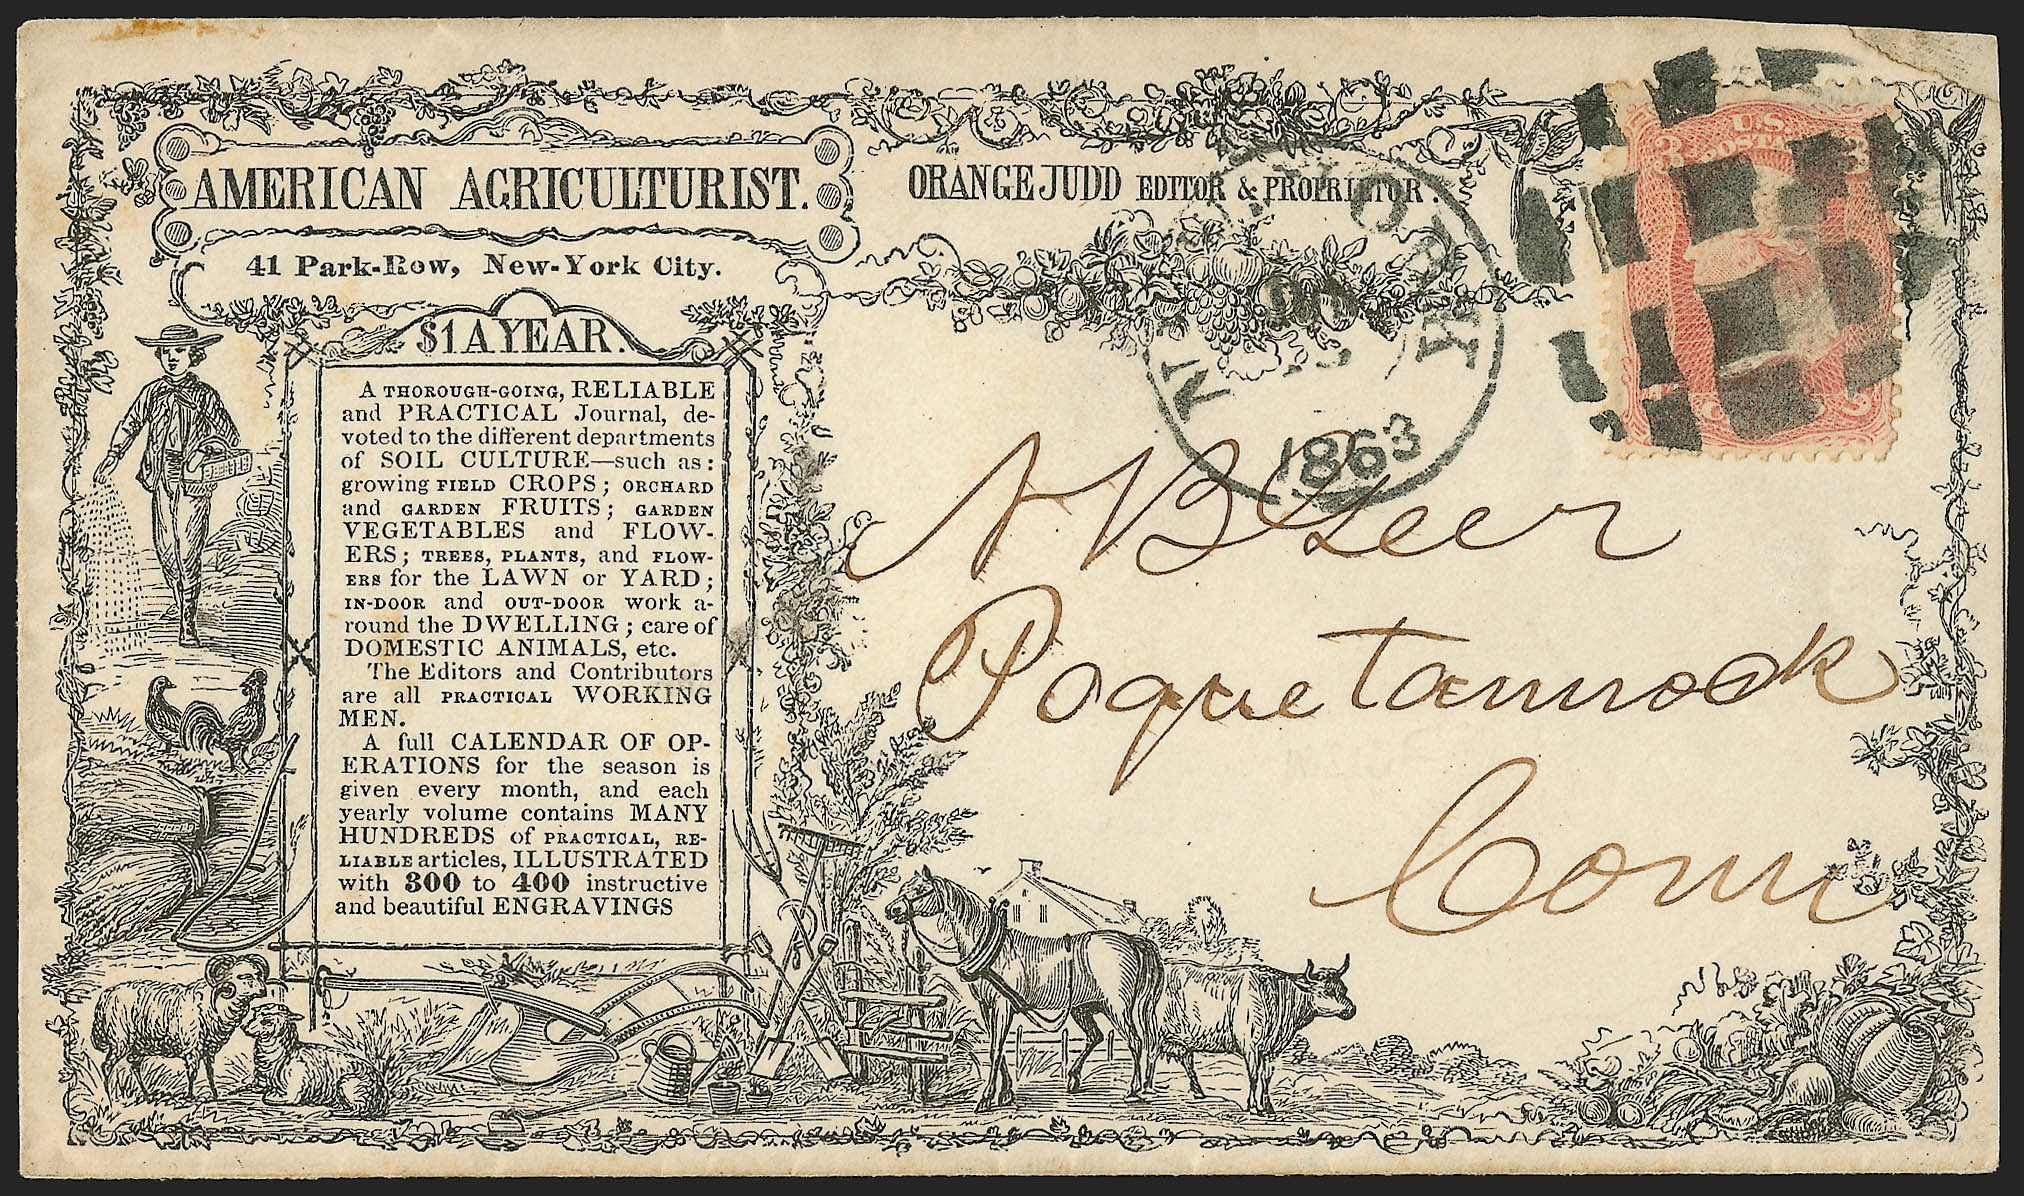 AMERICAN AGRICULTURIST.
ORANGE JUDD EDITOR & PROPRIETOR.
41 Park-Row, New-York City.
$1 A YEAR.
A THOROUGH-GOING, RELIABLE
and PRACTICAL Journal, de-
voted to the different departments
of SOIL CULTURE—such as:
growing FIELD CROPS; ORCHARD
and GARDEN FRUITS; GARDEN
VEGETABLES and FLOW-
ERS; TREES, PLANTS, and FLOW-
ERS for the LAWN or YARD;
IN-DOOR and OUT-DOOR work a-
round the DWELLING; care of
DOMESTIC ANIMALS, etc.
The Editors and Contributors
are all PRACTICAL WORKING
MEN.
A full CALENDAR OF OP-
ERATIONS for the season is
given every month, and each
yearly volume contains MANY
HUNDREDS of PRACTICAL, RE-
LIABLE articles, ILLUSTRATED
with 300 to 400 instructive
and beautiful ENGRAVINGS
NEW YORK
1863
3 U.S. 3
POSTA
N B Geer
Poquetannock
Conn